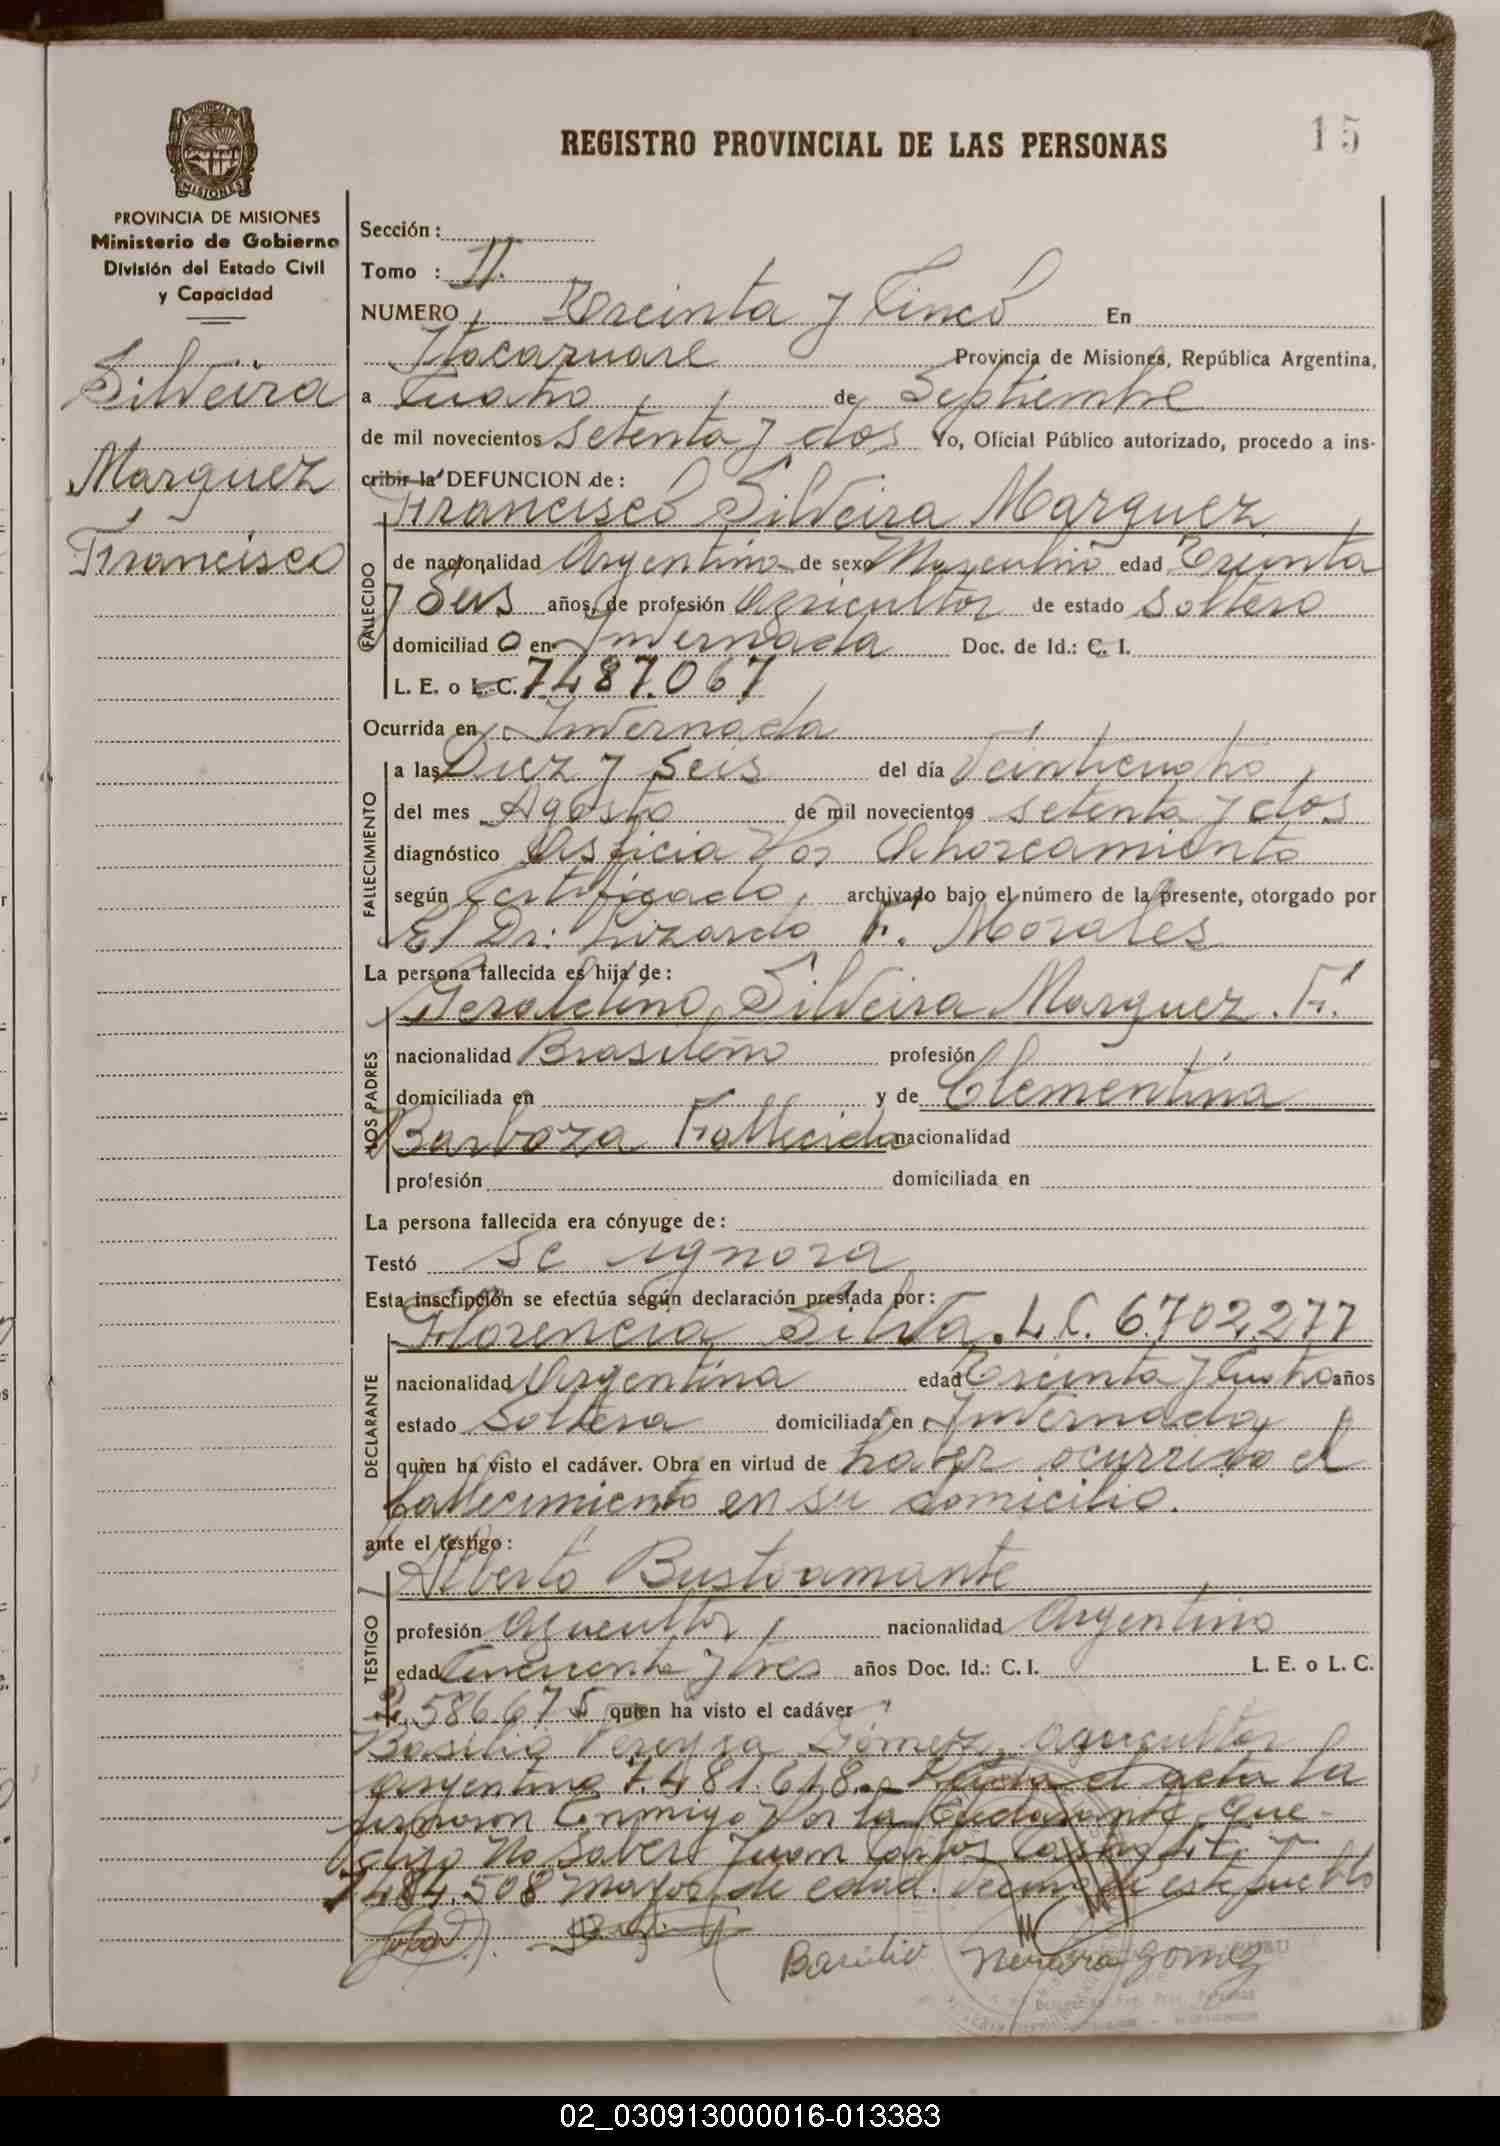 REGISTRO PROVINCIAL DE LAS PERSONAS
15
PROVINCIA DE MISIONES
Ministerio de Gobierno
División del Estado Civil
y Capacidad
Silveira
Marquez
Francisco
Sección :
Tomo : II.
NUMERO Treinta y Cinco En
Itacaruare Provincia de Misiones, República Argentina,
a Cuatro de Septiembre
de mil novecientos setenta y dos Yo, Oficial Público autorizado, procedo a ins-
cribir la DEFUNCION de :
Francisco Silveira Marquez
FALLECIDO
de nacionalidad Argentino de sexo Masculino edad Treinta
y Seis años, de profesión Agricultor de estado soltero
domiciliad o en Invernada Doc. de Id.: C. I.
L. E. o L. C. 7.487.067
Ocurrida en Invernada
FALLECIMIENTO
a las Diez y Seis del día Veinticuatro
del mes Agosto de mil novecientos setenta y dos
diagnóstico Asficia Por Ahorcamiento
según Certificado, archivado bajo el número de la presente, otorgado por
El Dr: Lizardo F. Morales
La persona fallecida es hija de :
Geraldino Silveira Marquez. F.
LOS PADRES
nacionalidad Brasileño profesión
domiciliada en y de Clementina
Barboza Fallecida nacionalidad
profesión domiciliada en
La persona fallecida era cónyuge de :
Testó se ignora
Esta inscripción se efectúa según declaración prestada por :
Florencia Silva. L.C. 6.702.277
DECLARANTE
nacionalidad Argentina edad Treinta y Cuatro años
estado Soltera domiciliada en Invernada
quien ha visto el cadáver. Obra en virtud de haber ocurrido el
fallecimiento en su domicilio.
ante el testigo :
Alberto Bustamante
TESTIGO
profesión Agricultor nacionalidad Argentino
edad Cincuenta y tres años Doc. Id.: C. I. L. E. o L. C.
586.675 quien ha visto el cadáver
Basilio Pereyra Gómez, agricultor
argentino 7.481.618. Leida el acta la
firmaron Conmigo Por la Declarante que
dijo No Saber Juan Carlos L.E.
7.484.508 mayor de edad. Vecino de este pueblo
Basilio Pereira Gomez
02_030913000016-013383